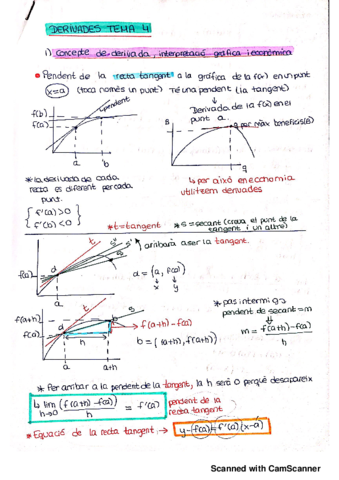 DERIVADES TEMA 4
1) Concepte de derivada, interpretació gràfica i econòmica
• Pendent de la recta tangent a la gràfica de la f(x) en un punt
x=a (toca només un punt) Té una pendent (la tangent)
pendent
f(b)
f(a)
a b
Derivada de la f(x) en el
punt a.
B
q per màx beneficis(B)
q
↳ per això en economia
utilitzem derivades
* la derivada de cada
recta es diferent per cada
punt.
{ f'(a)>0
f'(b)<0 }
* t=tangent * s=secant (creua el punt de la
tangent i un altre)
t s'' s' s
arribarà a ser la tangent.
f(a)
d
a
d = (a, f(a))
x y
* pas intermig
pendent de secant = m
m = f(a+h)-f(a) / h
f(a+h)
f(a)
t
s
b
d
h
a a+h
→ f(a+h)-f(a)
b = ((a+h), f(a+h))
* Per arribar a la pendent de la tangent, la h serà 0 perquè desapareix
↳ lim h→0 (f(a+h)-f(a)) / h = f'(a) pendent de la
recta tangent
* Equació de la recta tangent → y-f(a)=f'(a)(x-a)
Scanned with CamScanner